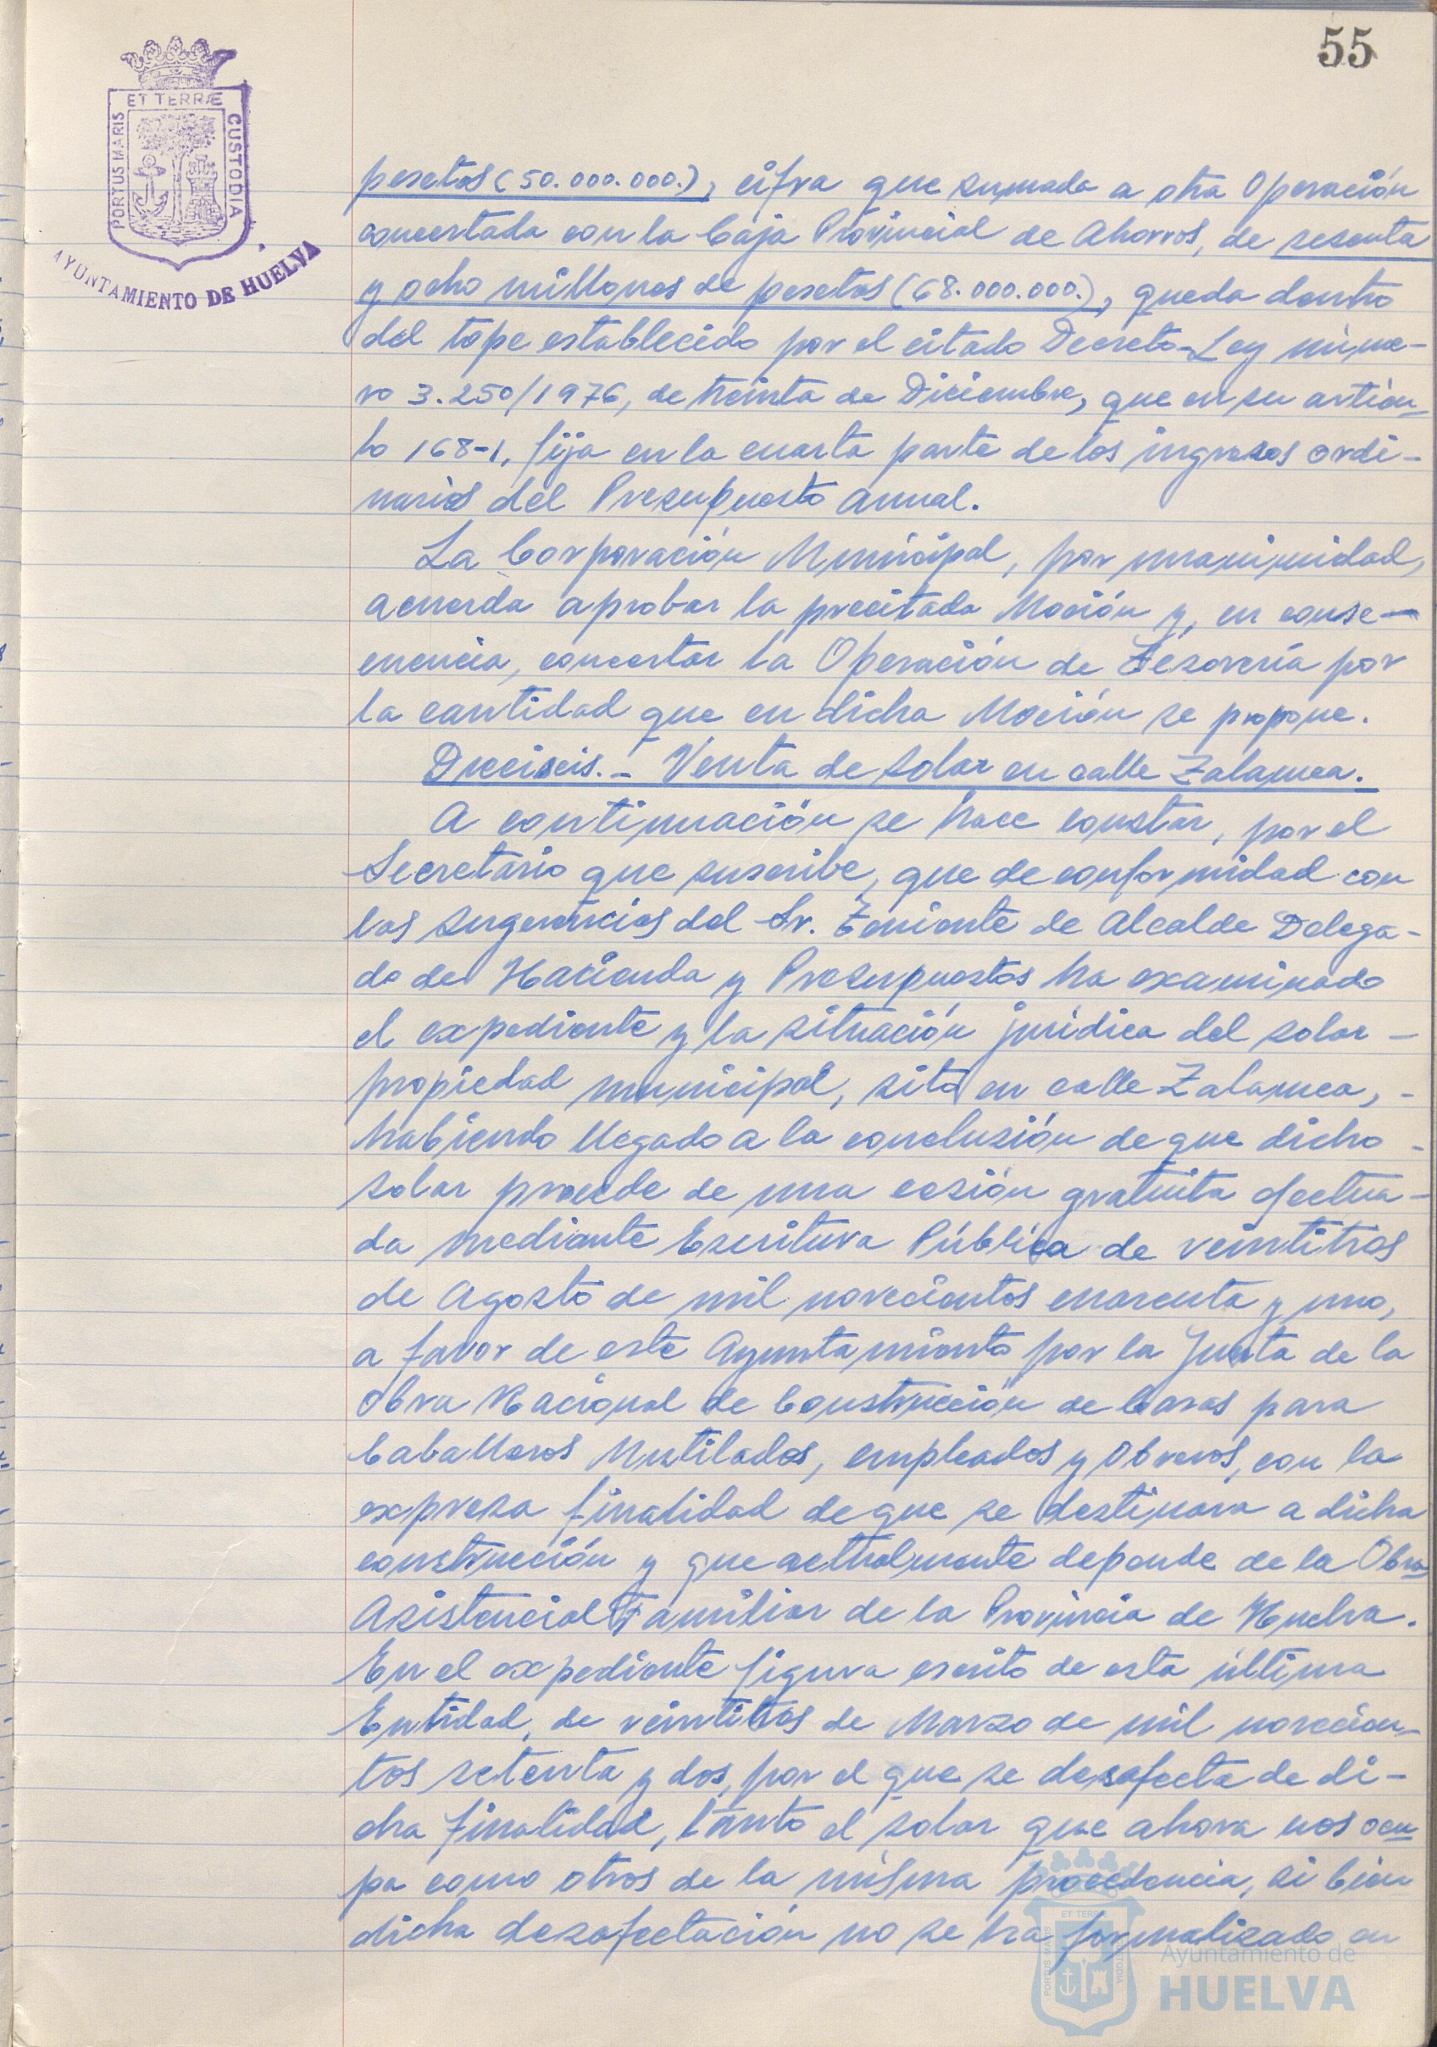 55
ET TERRÆ
PORTUS MARIS
CUSTODIA
AYUNTAMIENTO DE HUELVA
pesetas (50.000.000.), cifra que sumada a otra Operación
concertada con la Caja Provincial de Ahorros, de sesenta
y ocho millones de pesetas (68.000.000.), queda dentro
del tope establecido por el citado Decreto-Ley núme-
ro 3.250/1976, de treinta de Diciembre, que en su artícu-
lo 168-1, fija en la cuarta parte de los ingresos ordi-
narios del Presupuesto anual.
La Corporación Municipal, por unanimidad,
acuerda aprobar la precitada Moción y, en conse-
cuencia, concertar la Operación de Tesorería por
la cantidad que en dicha Moción se propone.
Dieciseis.- Venta de solar en calle Zalamea.
A continuación se hace constar, por el
Secretario que suscribe, que de conformidad con
las sugerencias del Sr. Teniente de Alcalde Delega-
do de Hacienda y Presupuestos ha examinado
el expediente y la situación jurídica del solar -
propiedad municipal, sito en calle Zalamea, -
habiendo llegado a la conclusión de que dicho -
solar procede de una cesión gratuita efectua-
da mediante Escritura Pública de veintitres
de Agosto de mil novecientos cuarenta y uno,
a favor de este Ayuntamiento por la Junta de la
Obra Nacional de Construcción de Casas para
Caballeros Mutilados, empleados y Obreros, con la
expresa finalidad de que se destinara a dicha
construcción y que actualmente depende de la Obra
Asistencial Familiar de la Provincia de Huelva.
En el expediente figura escrito de esta última
Entidad, de veintitres de Marzo de mil novecien-
tos setenta y dos, por el que se desafecta de di-
cha finalidad, tanto el solar que ahora nos ocu
pa como otros de la misma procedencia, si bien
dicha desafectación no se ha formalizado en
ET TERRÆ
PORTUS MARIS
CUSTODIA
Ayuntamiento de
HUELVA